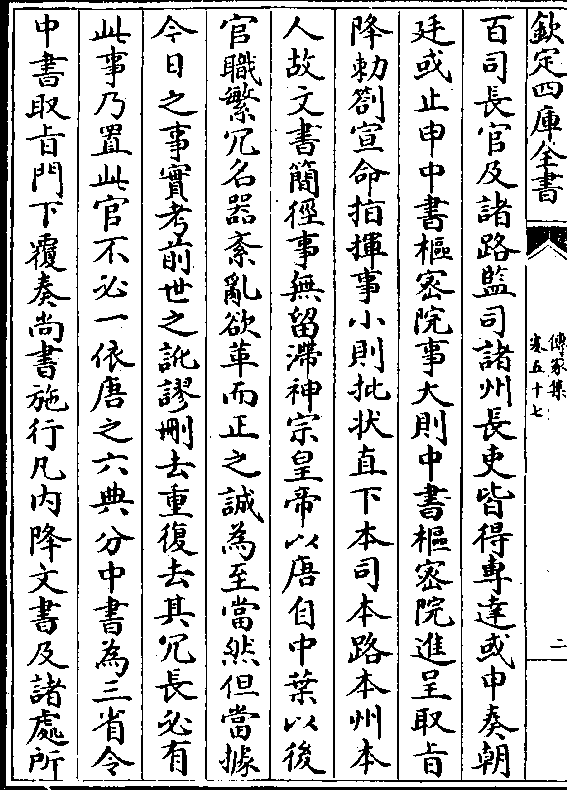 欽定四庫全書
傳家集
卷五十七
二
百司長官及諸路監司諸州長吏皆得專達或申奏朝
廷或止申中書樞宻院事大則中書樞宻院進呈取㫖
降勅劄宣命指揮事小則批狀直下本司本路本州本
人故文書簡徑事無留滯神宗皇帝以唐自中葉以後
官職繁冗名器紊亂欲革而正之誠為至當然但當據
今日之事實考前世之訛謬刪去重復去其冗長必有
此事乃置此官不必一依唐之六典分中書為三省令
中書取㫖門下覆奏尚書施行凡内降文書及諸處所